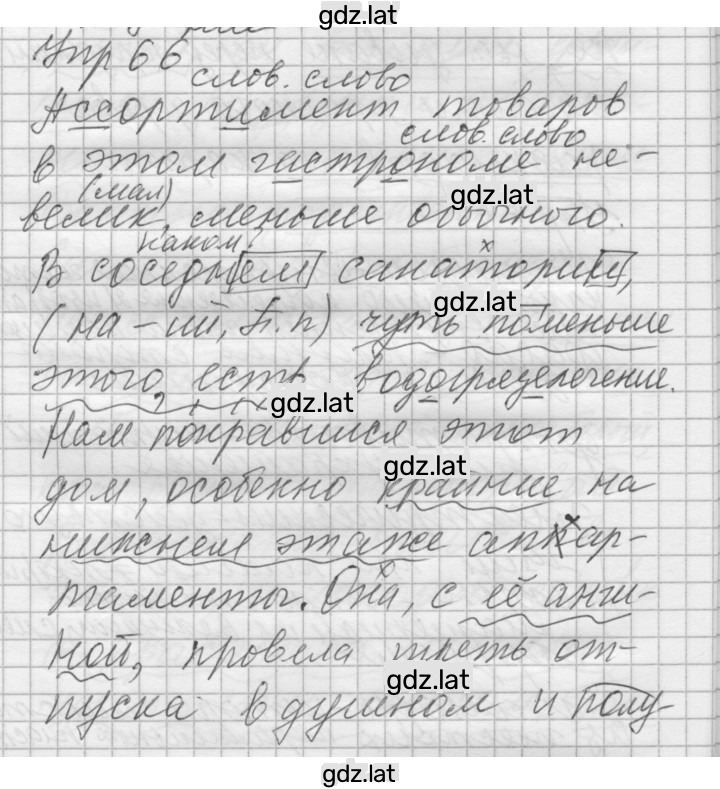 gdz.lat
Упр 66
слов. слово
Ассортимент товаров
слов. слово
в этом гастрономе не-
(мал)
велик, меньше обычного.
gdz.lat
каком?
В соседнем санатории,
gdz.lat
(на -ий, П.п) чуть поменьше
этого, есть водогрязелечение.
gdz.lat
Нам понравился этот
gdz.lat
дом, особенно крайние на
нижнем этаже аппар-
таменты. Она, с её анги-
ной, провела треть от-
gdz.lat
пуска в душном и полу-
gdz.lat